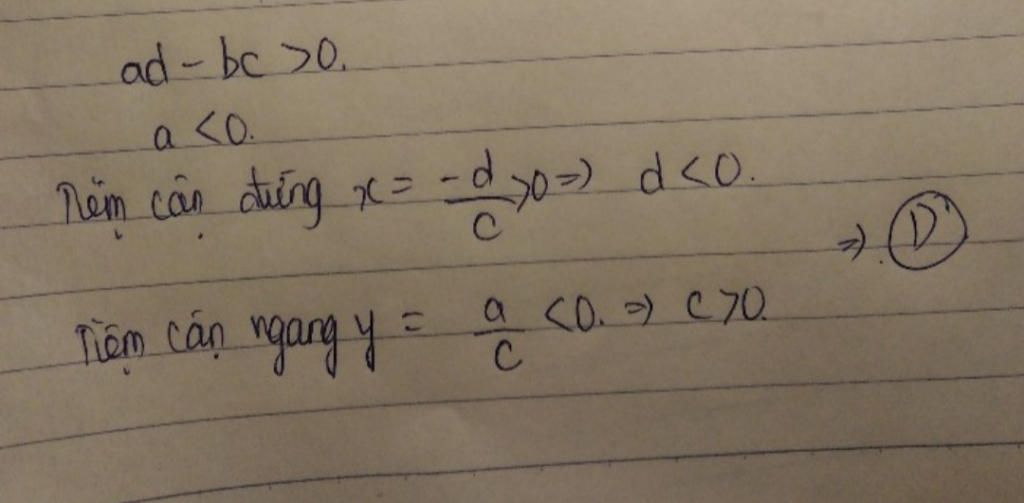 ad - bc > 0.
a < 0.
Tiệm cận đứng x = -d/c > 0 => d < 0.
=> D
Tiệm cận ngang y = a/c < 0. => c > 0.